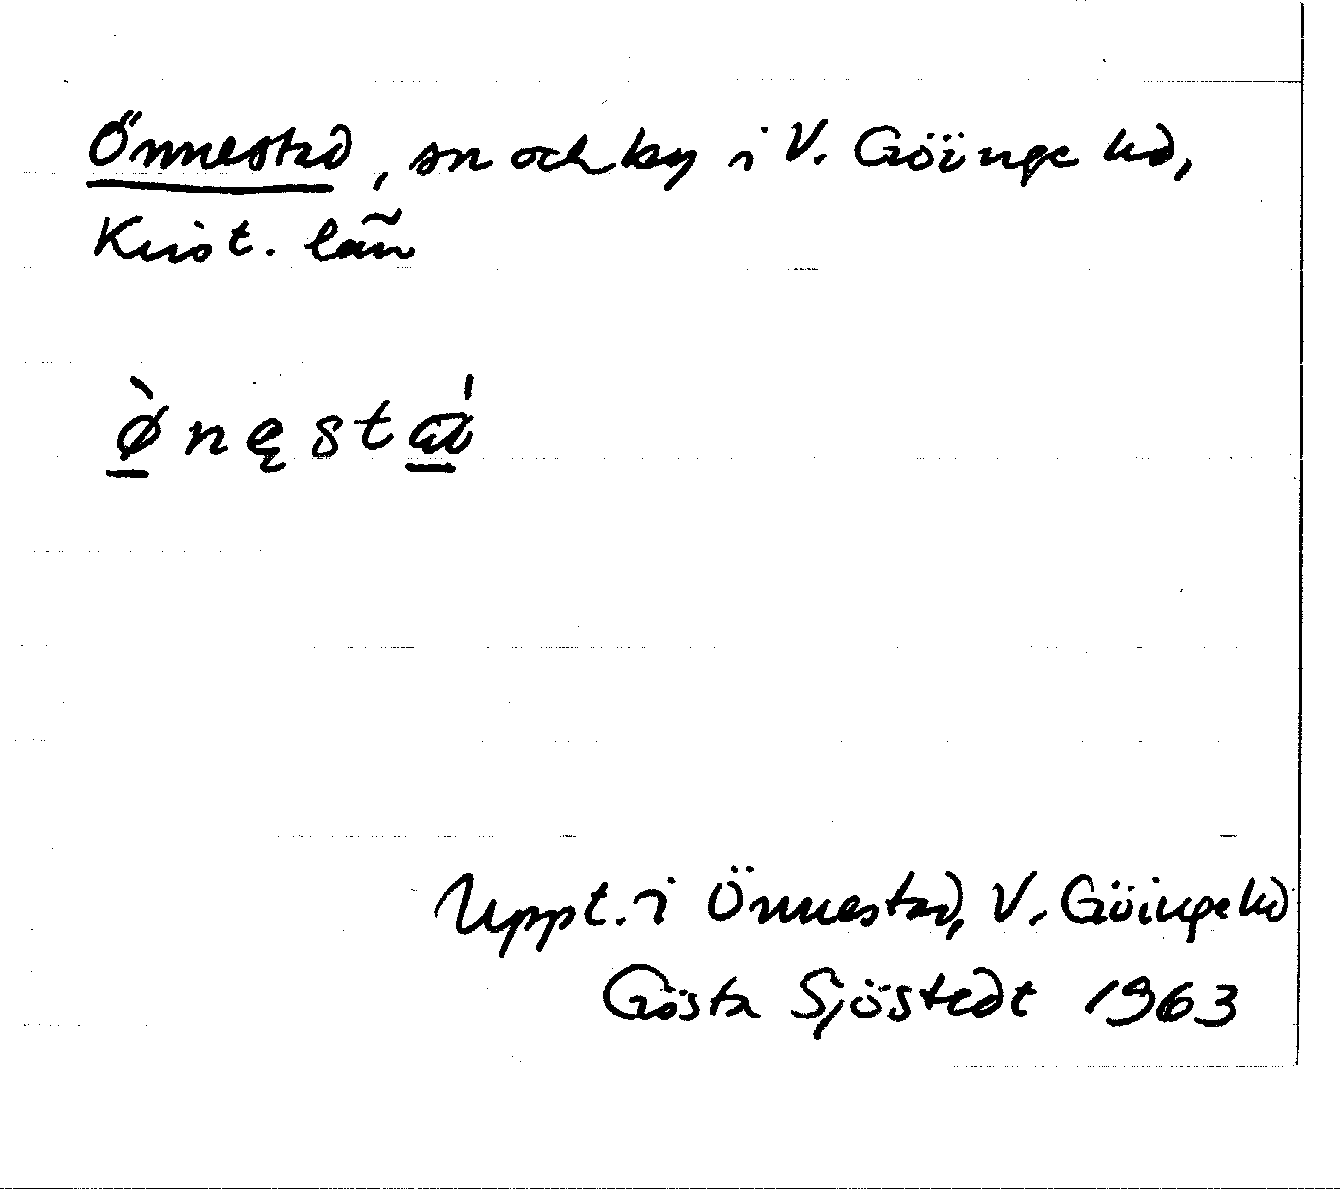 Önnestad, sn och by i V. Göinge hd,
Krist. län
ø̀nęsta̍
Uppt. i Önnestad, V. Göinge hd
Gösta Sjöstedt 1963